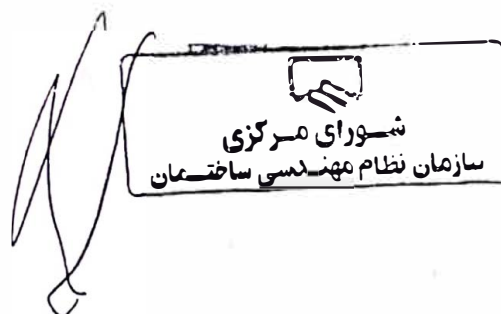 شورای مرکزی
سازمان نظام مهندسی ساختمان